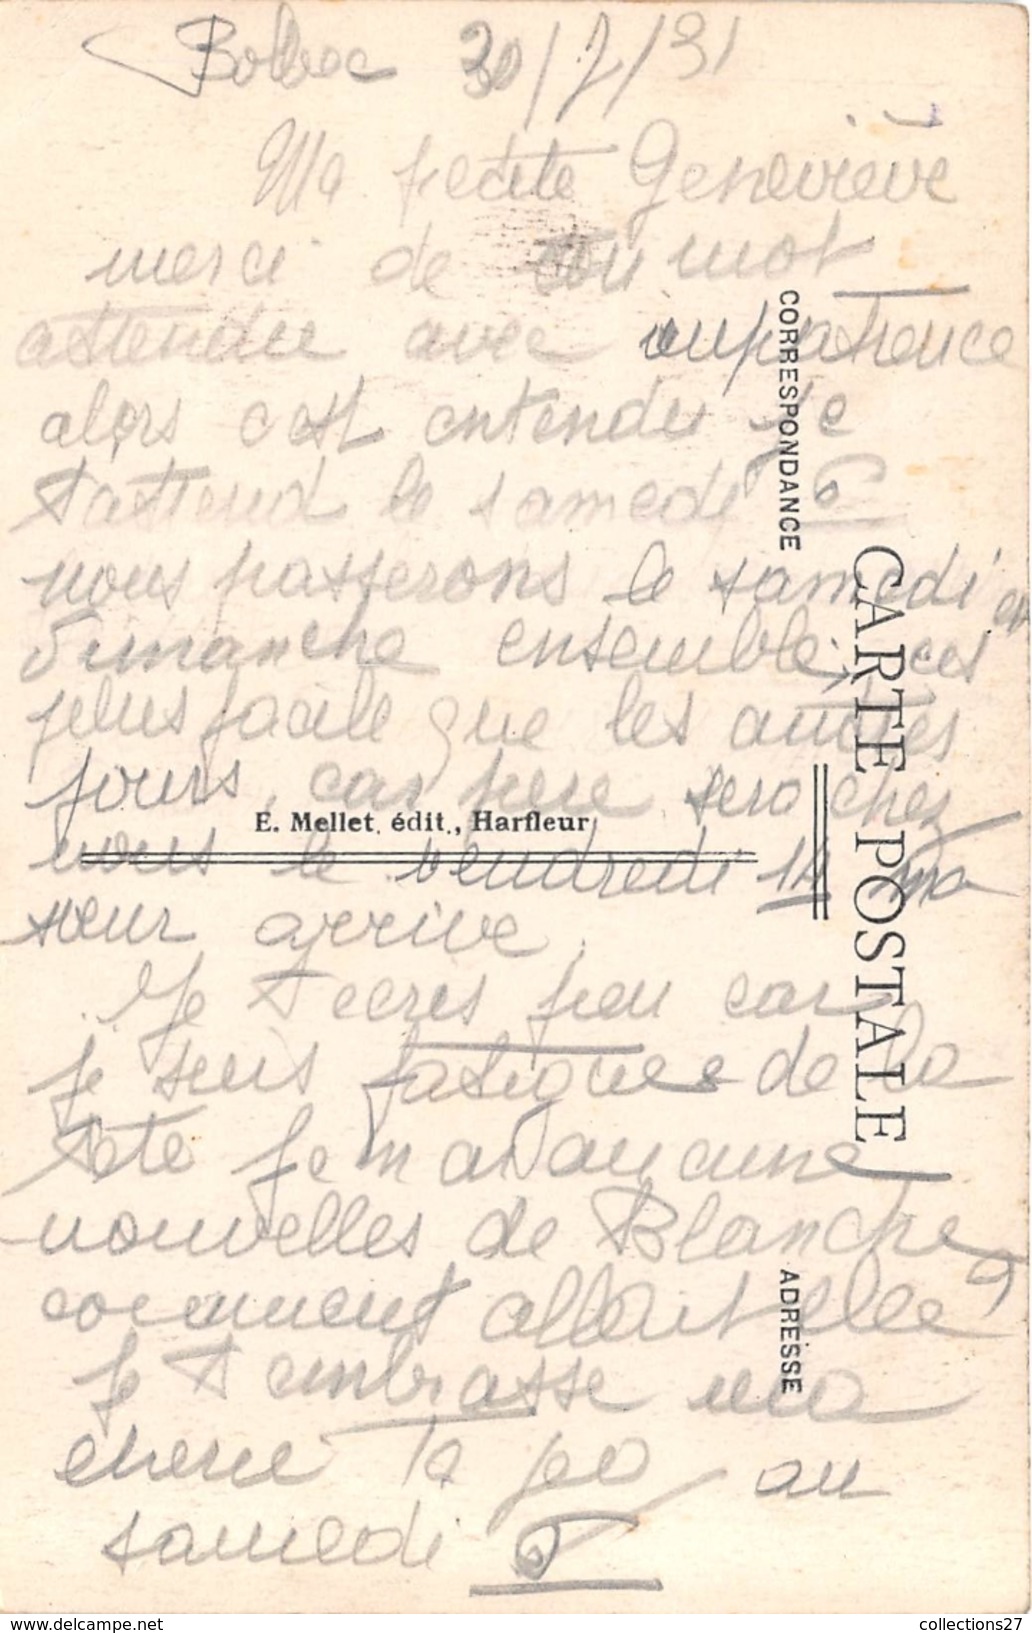 Bolbec 30/7/31
Ma petite Genevieve
merci de ton mot
attendu avec impatience
alors c est entendu je
t'attend le samedi
nous passerons le samedi et
dimanche ensemble, ces
plus facile que les autres
jours, car pere sera chez
E. Mellet, édit., Harfleur
nous le vendredi 14 ma
sœur arrive
Je t ecris peu car
je suis fatiguee de la
tete je m ai aucune
nouvelles de Blanche
comment allait elle
je t embrasse ma
cherie au
samedi
CORRESPONDANCE
CARTE POSTALE
ADRESSE
collections27